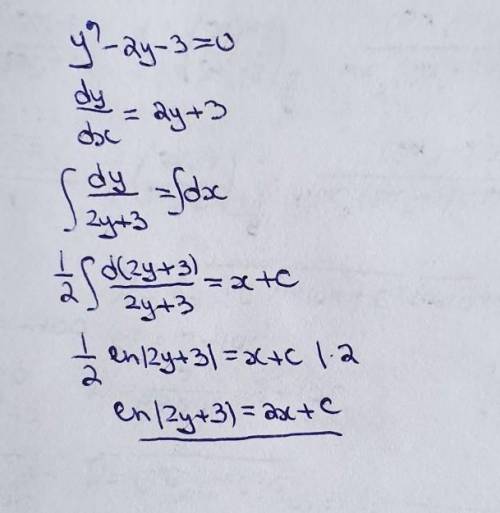 y' - 2y - 3 = 0
dy/dx = 2y + 3
∫ dy/(2y+3) = ∫dx
1/2 ∫ d(2y+3)/(2y+3) = x + C
1/2 ln|2y+3| = x + C |·2
ln|2y+3| = 2x + C